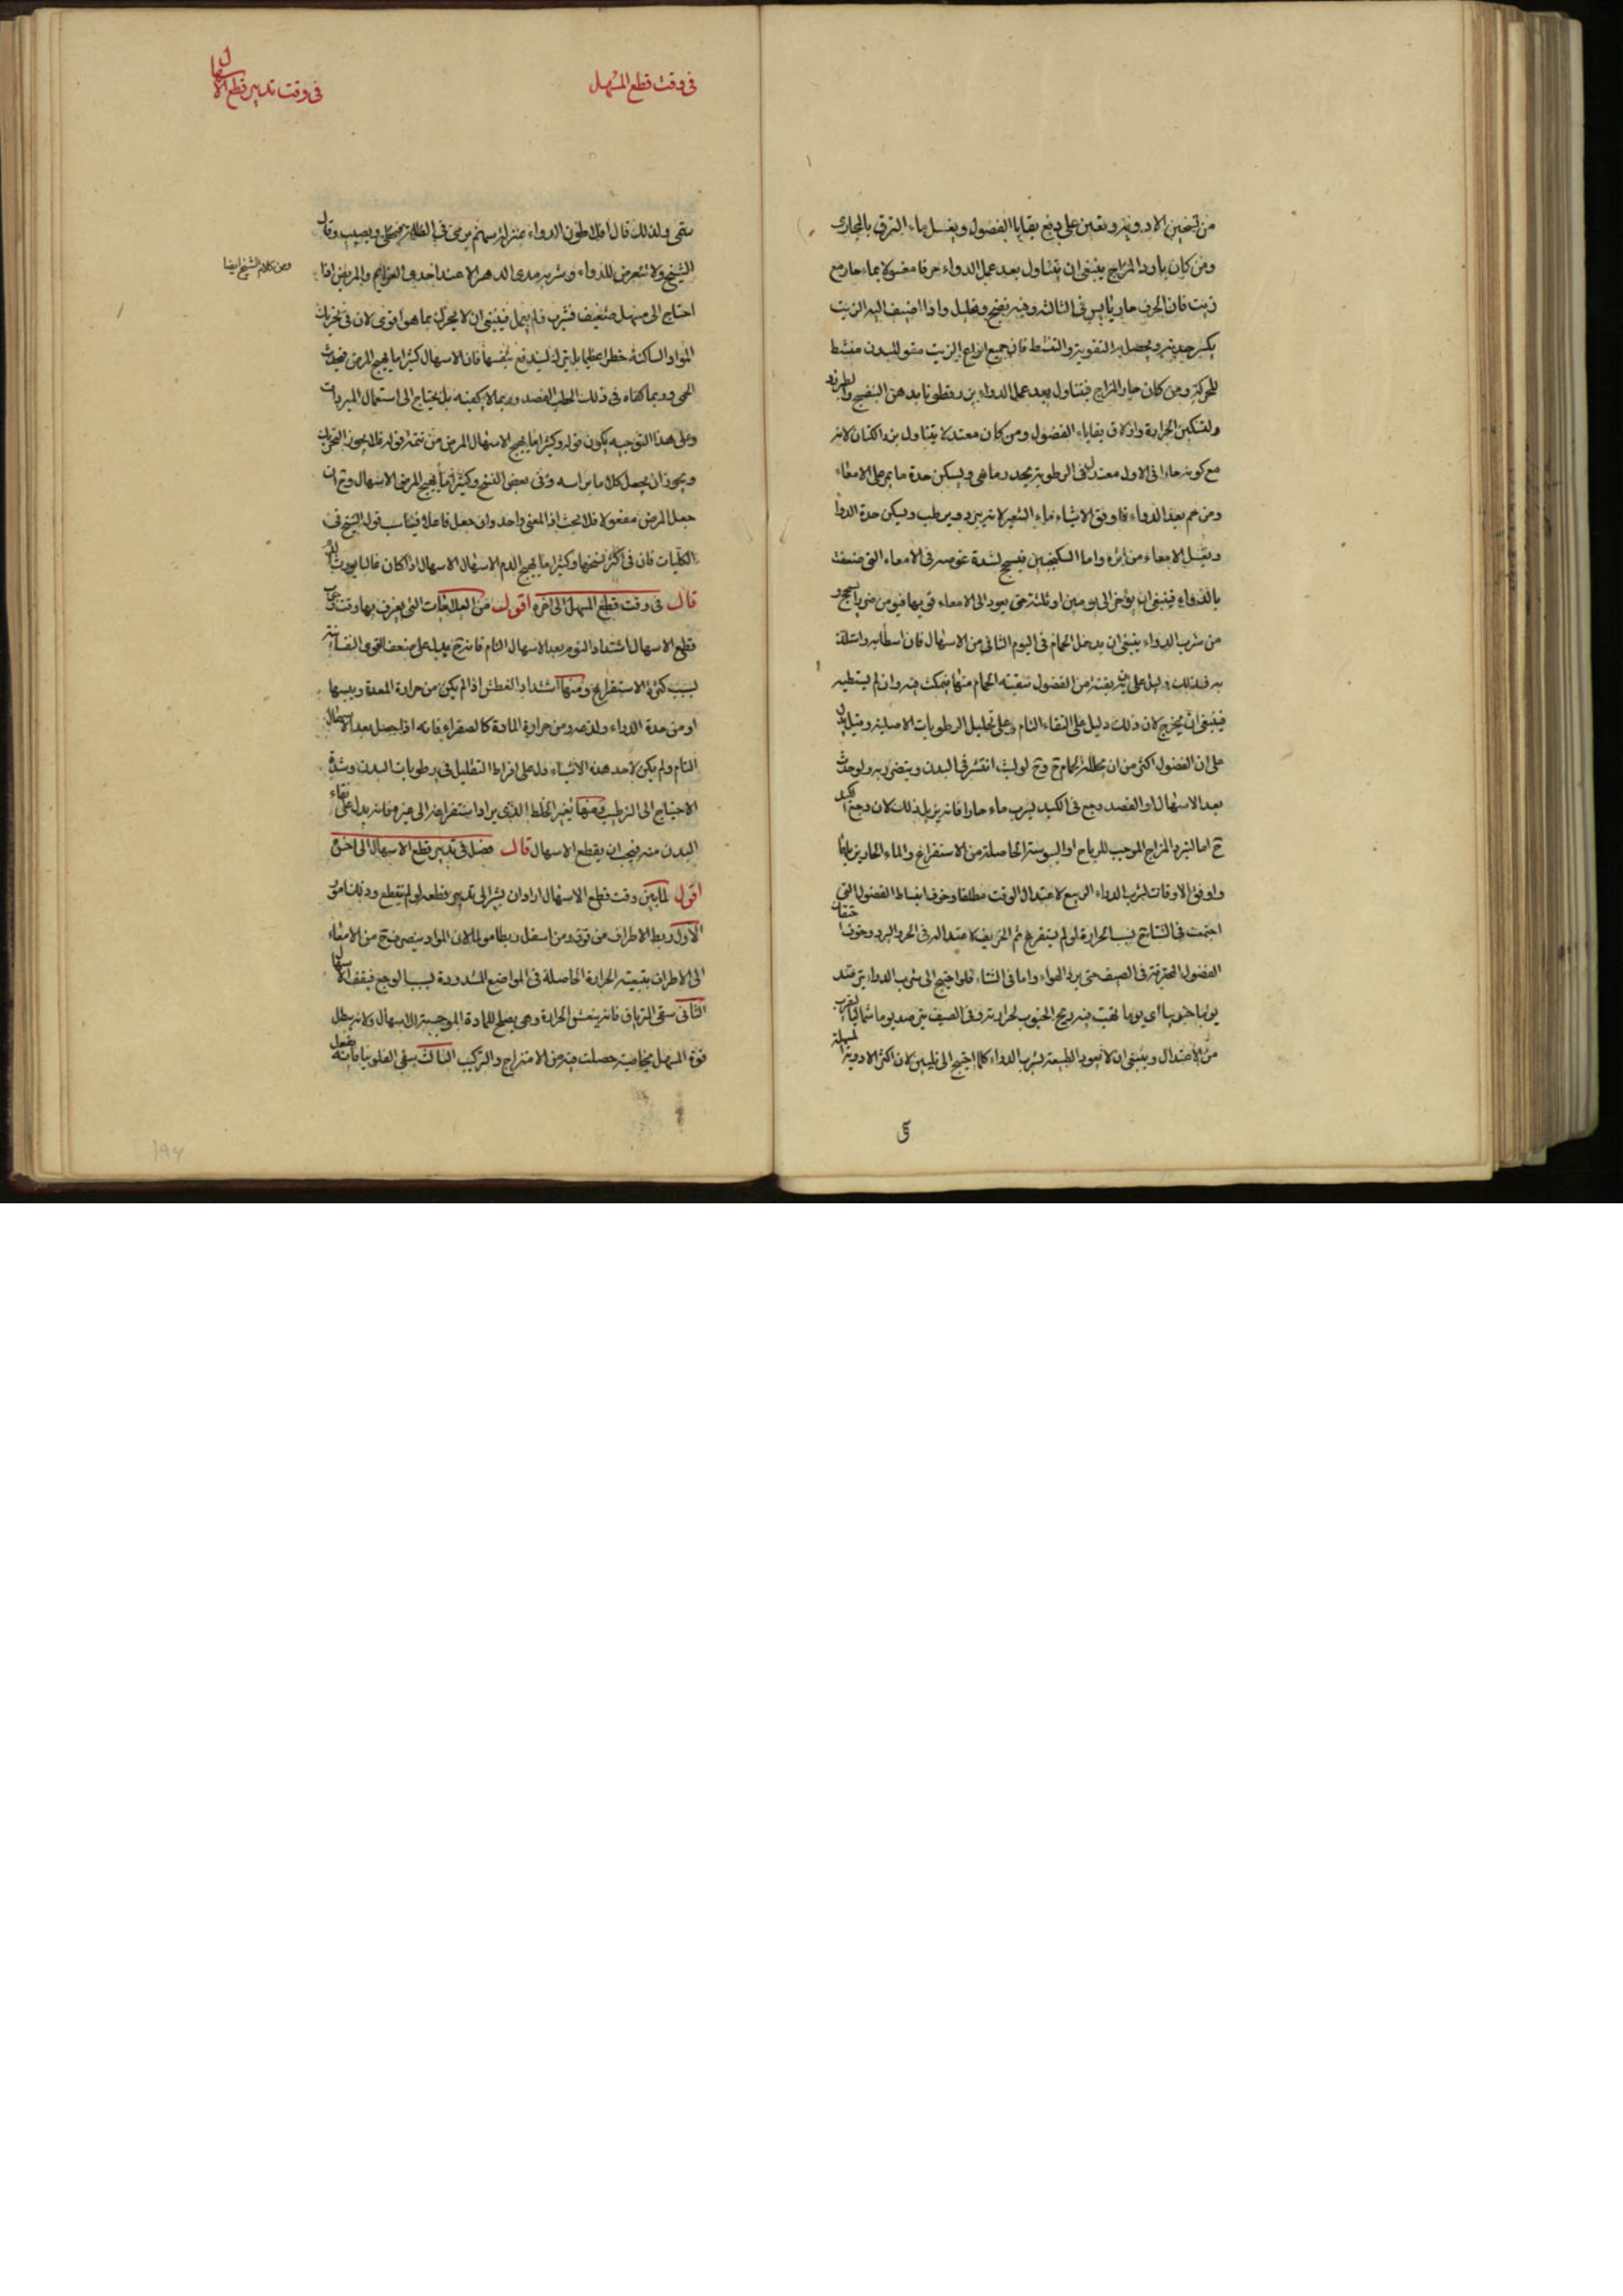 من تسخين الادوية ويعين على دفع بقايا الفضول ويغسل ماء
ومن كان بارد المزاج ينبغى ان يتناول بعد عمل الدواء حرفا مغسولا بماء حار مع
زيت فان الحرف حار يابس فى الثالثة وفيه نضج وتحليل واذا اضيف اليه الزيت
يكسر حدته ويحصل به التقوية والتنشط فان جميع انواع الزيت مقو للبدن منشط
للحركة ومن كان حار المزاج فيتناول بعد عمل الدواء بزرقطونا بدهن البنفسج
ولتسكين الحرارة وازلاق بقاياء الفضول ومن كان معتدلا يتناول بزر الكتان لانه
مع كونه حارا فى الاول معتدل فى الرطوبة واليبس ويسكن حدة ما يمر على الامعاء
ومن حم بعد الدواء فاوفق الاشياء ماء الشعير لانه يبرد ويرطب ويسكن حدة الدوا
ويغسل الامعاء من اثره واما السكنجبين فيسحج لشدة غوصه فى الامعاء التى ضعفت
بالدواء فينبغى ان يؤخر الى يومين او ثلثة حتى يعود الى الامعاء قوتها
من شرب الدواء ينبغى ان يدخل الحمام فى اليوم الثانى من الاسهال فان استطابه واستلذ
به فذلك دليل على بقية من الفضول تنقيته الحمام منها فيمكث فيه وان لم يستطبه
فينبغى ان يخرج لان ذلك دليل على النقاء التام وعلى تحليل الرطوبات الاصلية وقيل
على ان الفضول اكثر من ان يحللها الحمام ح وح لو لبث انتشر فى البدن ويتضرر به ولو حدث
بعد الاسهال او الفصد وجع فى الكبد ليشرب ماء حارا فانه يزيل ذلك لان وجع الكبد
ح اما لتبرد المزاج الموجب للرياح او اليبوسة الحاصلة من الاستفراغ والماء الحار
واوفق الاوقات لشرب الدواء الربيع لاعتدال الوقت مطلقا وخوف انبساط الفضول التى
اجتمعت فى الشتاء بسبب الحرارة لو لم يستفرغ ثم الخريف لاعتداله فى الحر والبرد وخوف احتقان
الفضول المحترقة فى الصيف حتى برد الهواء واما فى الشتاء فلو احتيج الى شرب الدواء يترصد
يوما جنوبيا اى يوما تهب فيه ريح الجنوب لحرارته وفى الصيف يترصد يوما شماليا ليقرب
من الاعتدال وينبغى ان لا يعود الطبيعة بشرب الدواء كلما احتيج الى تليين لان اكثر الادوية المسهلة
فى وقت قطع المسهل
فى وقت تدبير قطع الاسهال
ولذلك قال افلاطون الدواء بمنزلة سهم يرمى فى الظلمة فيخطى ويصيب وقال
الشيخ ولا تتعرض للدواء وشربه مدى الدهر الا عند احدى العزايم والمريض اذا
ومن كلام الشيخ ايضا
احتاج الى مسهل ضعيف فشرب فلم يعمل فينبغى ان لا يحرك بما هو اقوى لان فى تحريك
المواد الساكنة خطرا عظيما بل يترك ليندفع بنفسها فان الاسهال كثيرا ما يهيج المرض فيحدث
الحمى وربما كفاه فى ذلك الفصد وربما لا يكفيه بل يحتاج الى استعمال المبردات
وعلى هذا التوجيه يكون قوله وكثيرا ما يهيج الاسهال المرض من تتمة قوله فلا يجوز التحريك
ويجوز ان يجعل كلاما براسه وفى بعض النسخ وكثيرا ما يهيج المرض الاسهال وح ان
جعل المرض مفعولا فلا بحث اذ المعنى واحد وان جعل فاعلا فيناسب قول الشيخ فى
الكليات فان فى اكثر نسخها وكثيرا ما يهيج الدم الاسهال لان الاسهال اذا كان غالبا
قال فى وقت قطع المسهل الى اخره اقول من العلامات التى يعرف بها وقت
قطع الاسهال اشتداد النوم بعد الاسهال التام فانه ح يدل على ضعف القوى النفسانية
بسبب كثرة الاستفراغ ومنها اشتداد العطش اذا لم يكن من حرارة المعدة ويبسها
او من حدة الدواء ولذعه ومن حرارة المادة كالصفراء فانه اذا حصل بعد الاسهال
التام ولم يكن لاحد هذه الاشياء دل على افراط التحليل فى رطوبات البدن وشدة
الاحتياج الى الترطيب ومنها تغير الخلط الذى يراد استفراغه الى غيره فانه يدل على نقاء
البدن منه فيجب ان يقطع الاسهال قال فصل فى تدبير قطع الاسهال الى اخره
اقول لما بين وقت قطع الاسهال اراد ان يشير الى تدبير قطعه لو لم ينقطع وذلك بامور
الاول ربط الاطراف من فوق ومن اسفل ربطا مولما لان المواد ينصرف ح من الامعاء
الى الاطراف بتبعية الحرارة الحاصلة فى المواضع المشدودة بسبب الوجع فيقف الاسهال
الثانى سقى الترياق فانه ينعش الحرارة وهى يصلح للمادة الموجبة للاسهال ولانه يبطل
قوة المسهل بخاصية حصلت فيه من الامتزاج والتركيب الثالث سقى الفلونيا فانه يفعل